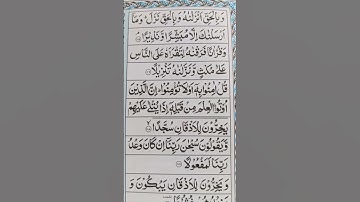 وَ بِالْحَقِّ اَنْزَلْنٰهُ وَ بِالْحَقِّ نَزَلَ ؕ وَ مَاۤ
اَرْسَلْنٰكَ اِلَّا مُبَشِّرًا وَّ نَذِیْرًا ۘ
وَ قُرْاٰنًا فَرَقْنٰهُ لِتَقْرَاَهٗ عَلَی النَّاسِ
عَلٰی مُكْثٍ وَّ نَزَّلْنٰهُ تَنْزِیْلًا
قُلْ اٰمِنُوْا بِهٖۤ اَوْ لَا تُؤْمِنُوْا ؕ اِنَّ الَّذِیْنَ
اُوْتُوا الْعِلْمَ مِنْ قَبْلِهٖۤ اِذَا یُتْلٰی عَلَیْهِمْ
یَخِرُّوْنَ لِلْاَذْقَانِ سُجَّدًا ۙ
وَّ یَقُوْلُوْنَ سُبْحٰنَ رَبِّنَاۤ اِنْ كَانَ وَعْدُ
رَبِّنَا لَمَفْعُوْلًا
وَ یَخِرُّوْنَ لِلْاَذْقَانِ یَبْكُوْنَ وَ